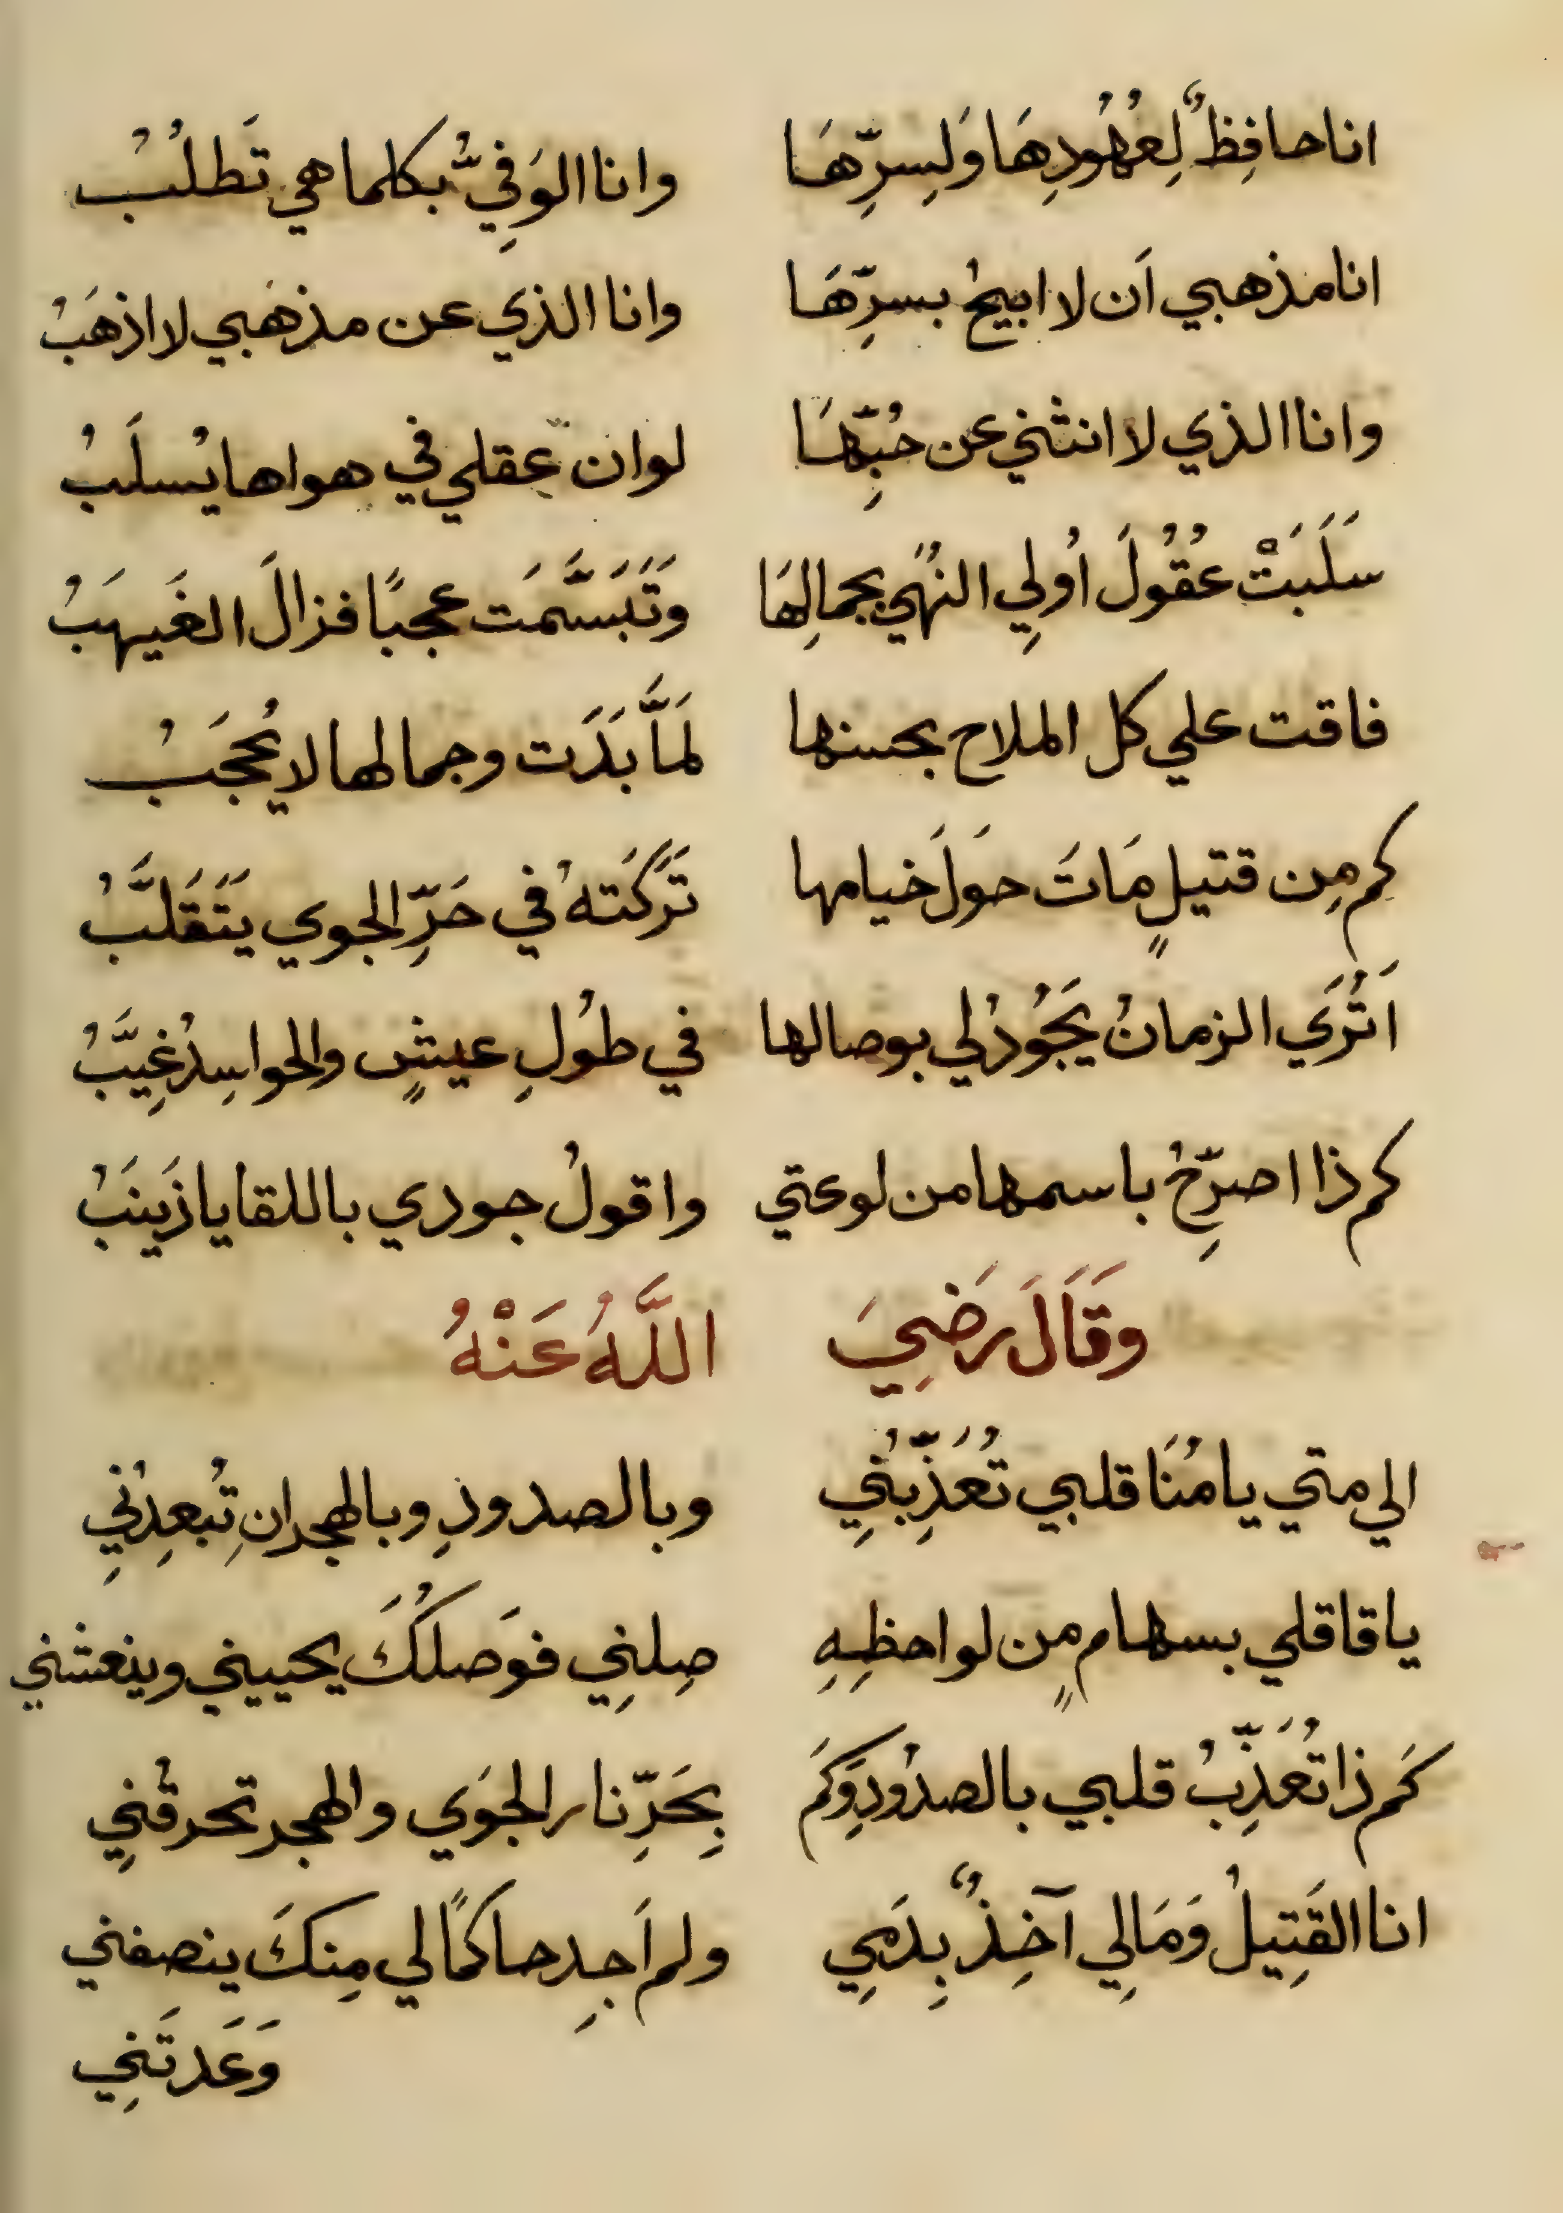 انا حافِظٌ لِعُهُودِهَا وَلسِرِّهَا وانا الوَفِيُّ بكلما هي تَطلُبُ
انا مذهبي اَن لا ابيحُ بسرِّهَا وانا الذي عن مذهَبي لا اذهَبُ
وانا الذي لا انثني عن حُبِّهَا لو ان عقلي في هواها يُسلَبُ
سَلَبَتْ عُقُولَ اُولِي النُهَي بجمالِهَا وَتَبَسَّمَت عجبًا فزالَ الغَيهَبُ
فاقت علي كل الملاح بحسنها لمَّا بَدَت وجمالها لا يُحجَبُ
كم مِن قتيلٍ مَاتَ حَولَ خيامها تَرَكَتهُ في حَرِّ الجوي يَتَقَلَّبُ
اَتُرَي الزمانُ يَجُودُ لي بوصالها في طُولِ عيشٍ والحواسِدُ غِيَّبُ
كم ذا اصرِّخُ باسمها من لوعتي واقولُ جودي باللقا يا زَينَبُ
وَقَالَ رَضِيَ اللَّهُ عَنْهُ
الي متي يا مُنَا قلبي تُعَذِّبُنِي وبالصدودِ وبالهجرانِ تُبعِدُنِي
يا قاقلي بسهامٍ مِن لواحظِهِ صِلنِي فوَصلُكَ يحييني وينعشني
كَم ذا تُعَذِّبُ قلبي بالصدُودِ وَكَم بِحَرِّ نار الجَوَي والهجر تحرقُنِي
انا القَتِيلُ وَمَالِي آخِذٌ بِدَمِي ولم اَجِد حاكمًا لي مِنكَ ينصفني
وَعَدتَنِي